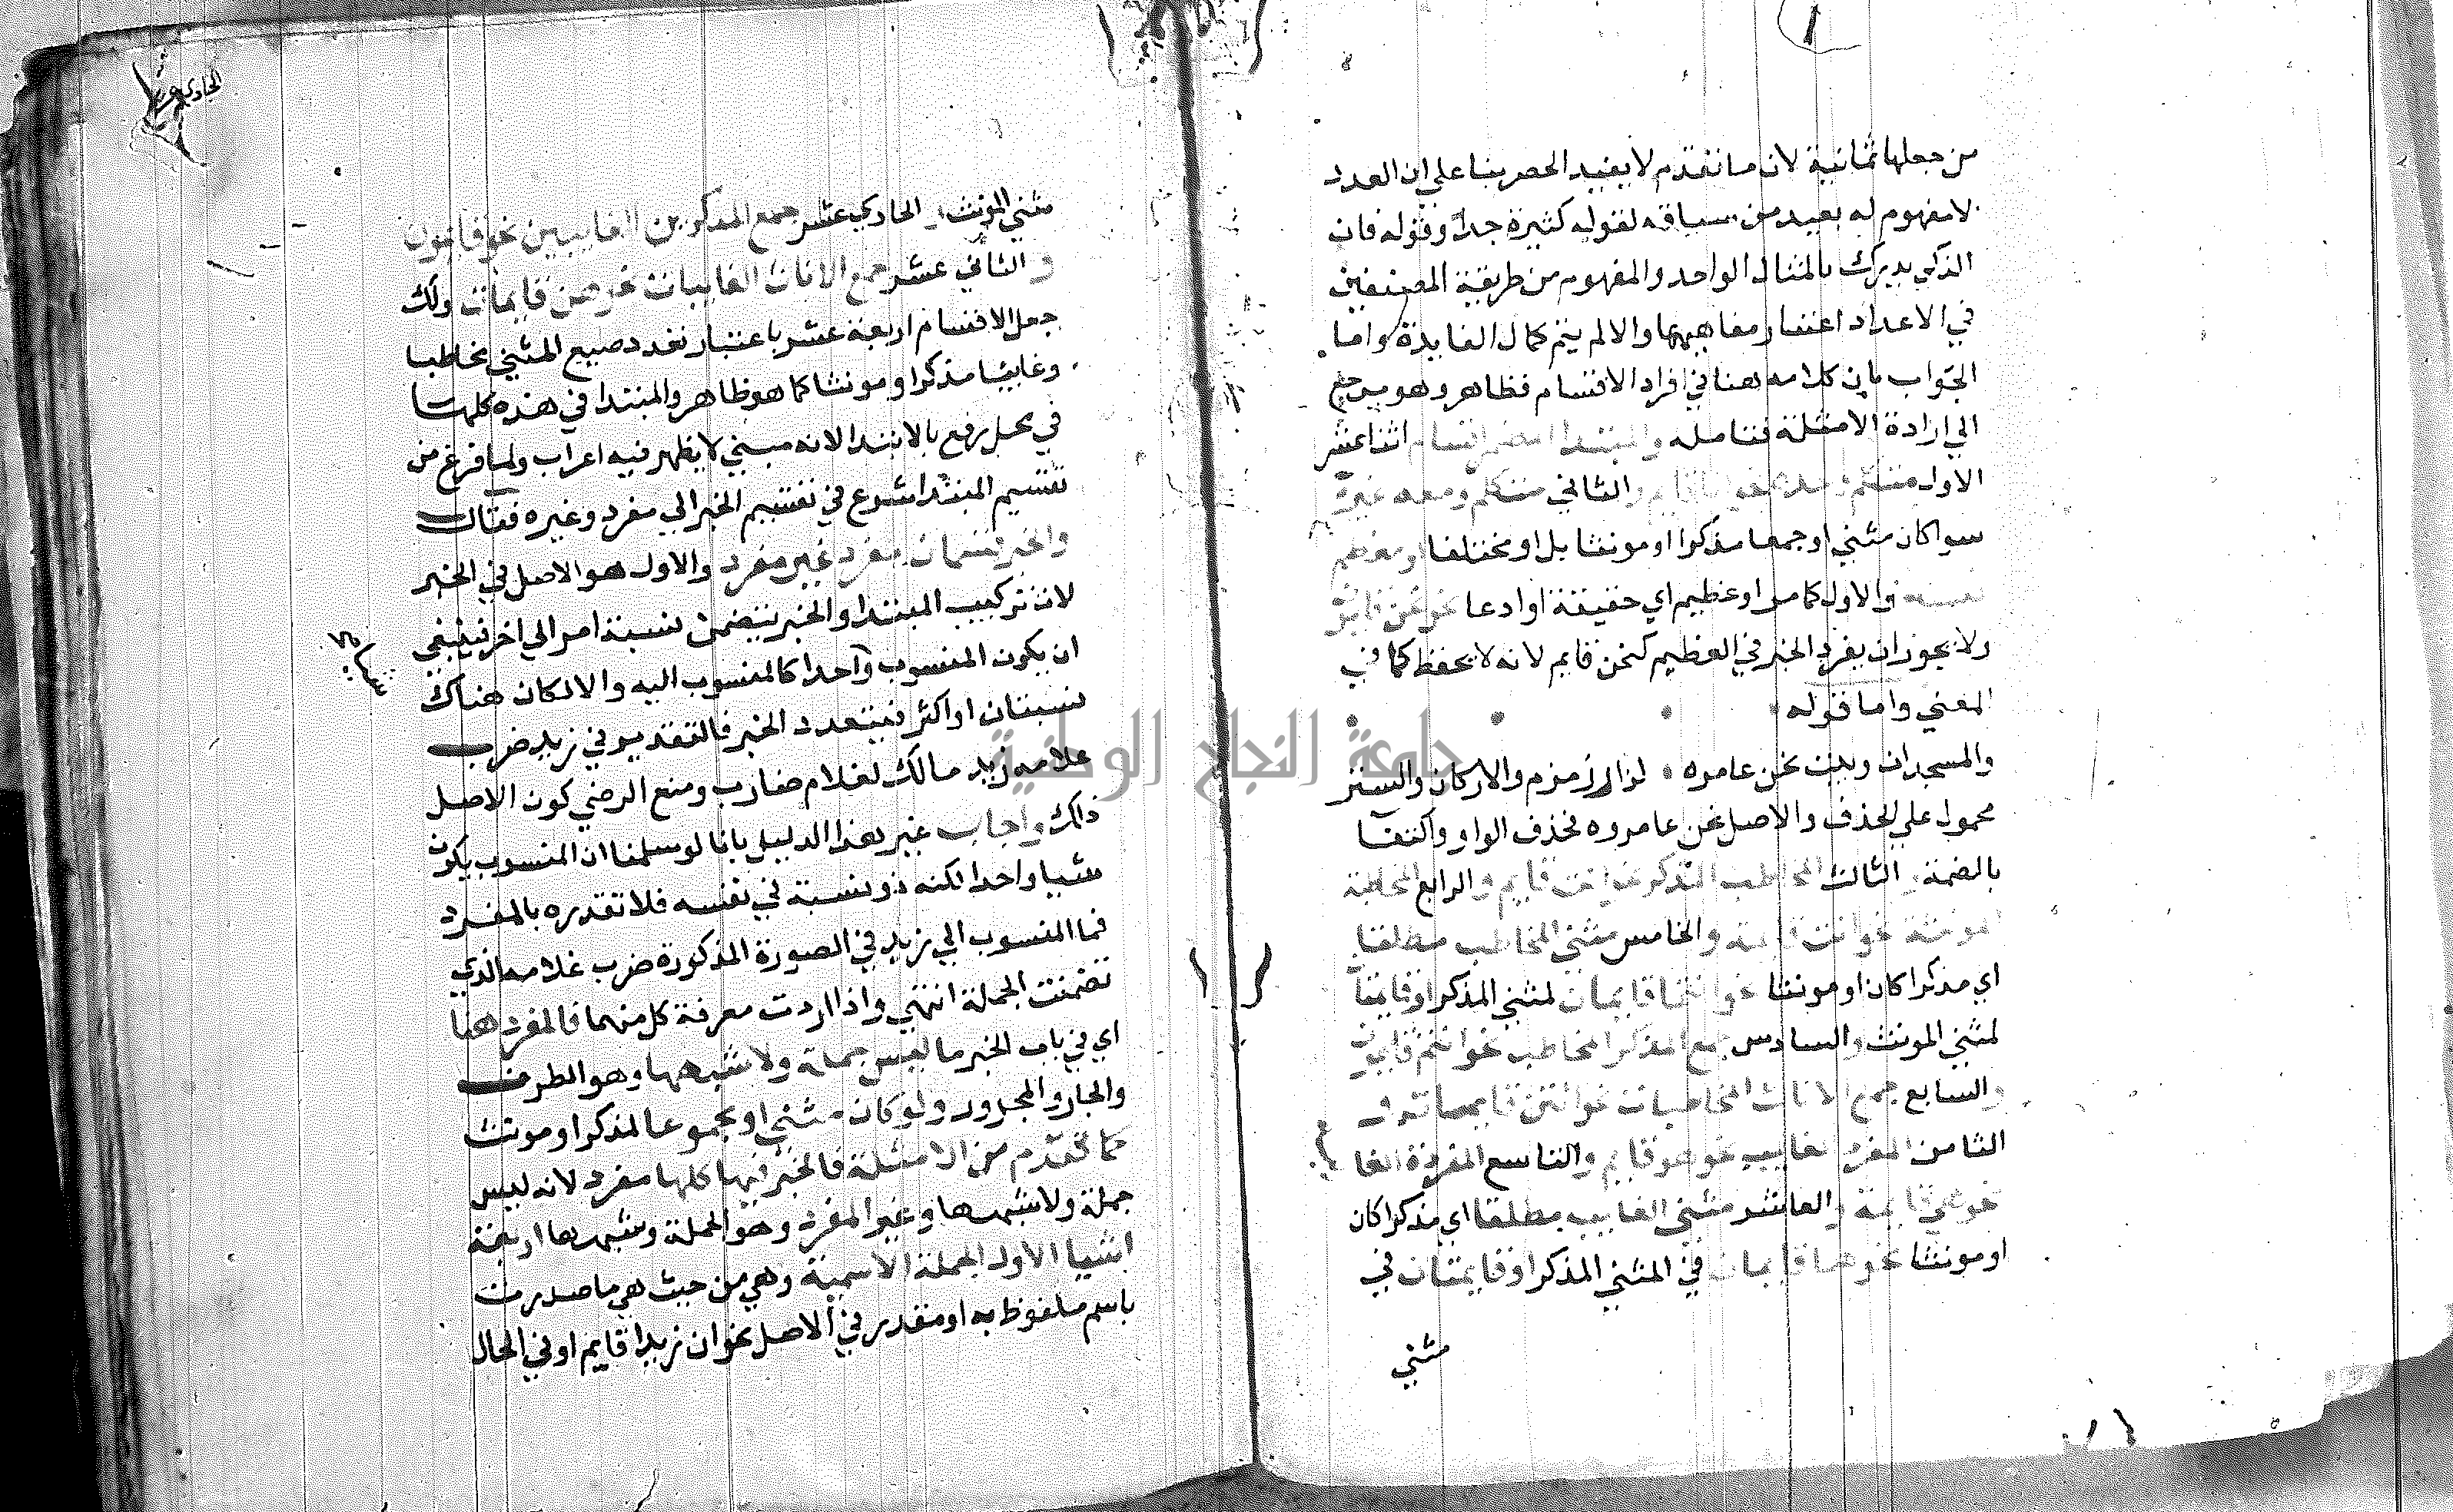 من جعلها ثمانية لان ما تقدم لا يفيد الحصر بنا علي ان العدد
لا مفهوم له بعيد من سياقه لقوله كثيرة جدا وقوله فان
الذكي يدرك بالمثال الواحد والمفهوم من طريقة المصنفين
في الاعداد اعتبار مفاهيمها والا لم يتم كمال الفايدة واما
الجواب بان كلامه هنا في افراد الاقسام فظاهر وهو يرجع
الي ارادة الامثلة فتامله والمبتدا المضمر اثنا عشر
الاول متكلم وحده نحو انا قايم والثاني متكلم ومعه غيره
سوا كان مثني او جمعا مذكرا او مونثا بل او مختلفا او معظم
نفسه والاول كامر او عظيم اي حقيقة او ادعا نحو نحن قايمون
ولا يجوز ان يفرد الخبر في العظيم كنحن قايم لانه لا يحفظ كما في
المغني واما قوله
والمسجدان وبيت نحن عامره لنا وزمزم والاركان والستر
محمول علي الحذف والاصل نحن عامروه فحذف الواو واكتفا
بالضمة والثالث المخاطب المذكر نحو انت قايم والرابع المخاطبة
المونثة نحو انت قايمة والخامس مثني المخاطب مطلقا
اي مذكرا كان او مونثا نحو انتما قايمان لمثني المذكر او قايمتا
لمثني المونث والسادس جمع المذكر المخاطب نحو انتم قايمون
والسابع جمع الاناث المخاطبات نحو انتن قايمات و
الثامن المفرد الغايب نحو هو قايم والتاسع المفردة الغا
نحو هي قايمة والعاشر مثني الغايب مطلقا اي مذكرا كان
او مونثا نحو هما قايمان في المثني المذكر او قايمتان في
مثني
الحادي عشر
مثني المونث والحادي عشر جمع المذكرين الغايبين نحو قايمون
والثاني عشر جمع الاناث الغايبات نحو هن قايمات ولك
جعل الاقسام اربعة عشر باعتبار تعدد صيغ المثني مخاطبا
وغايبا مذكرا ومونثا كما هو ظاهر والمبتدا في هذه كلها
في محل رفع بالابتدا لانه مبني لا يظهر فيه اعراب ولما فرغ من
تقسيم المبتدا شرع في تقسيم الخبر الي مفرد وغيره فقال
والخبر قسمان مفرد غير مفرد والاول هو الاصل في الخبر
لان تركيب المبتدا والخبر يتضمن نسبة امر الي اخر فينبغي
ان يكون المنسوب واحدا كالمنسوب اليه والا لكان هناك
نسبتان او اكثر فيتعدد الخبر فالتقدير في زيد ضرب
غلامه زيد مالك لغلام ضارب ومنع الرضي كون الاصل
ذلك واجاب عن هذا الدليل بانا لو سلمنا ان المنسوب يكون
شيا واحدا لكنه ذو نسبة في نفسه فلا تقدره بالمفرد
فما المنسوب الي زيد في الصورة المذكورة ضرب غلامه الذي
تضمنت الجملة انتهي واذا اردت معرفة كل منهما فالمفرد هنا
اي في باب الخبر ما ليس جملة ولا شبهها وهو الظرف
والجار والمجرور ولو كان مثني او مجموعا لمذكر او مونث
كما تقدم من الامثلة فالخبر فيها كلها مفرد لانه ليس
جملة ولا شبهها وغير المفرد وهو الجملة وشبهها اربعة
اشيا الاول الجملة الاسمية وهي من حيث هي ما صدرت
باسم ملفوظ به او مقدر في الاصل نحو ان زيدا قايم او في الحال
جامعة النجاح الوطنية